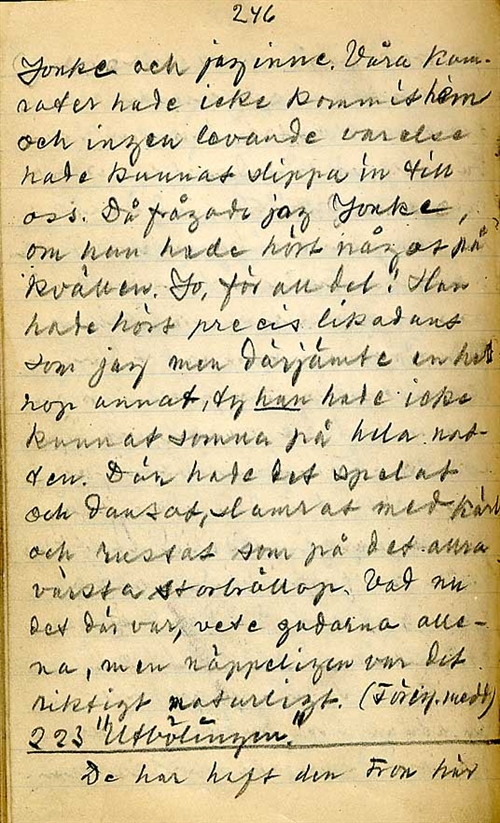 246
Jonke och jag inne. Våra kam-
rater hade icke kommit hem
och ingen levande varelse
hade kunnat slippa in till
oss. Då frågade jag Jonke,
om han hade hört något på
kvällen. Jo, för all del! Han
hade hört precis likadant
som jag men därjämte en hel
hop annat, ty han hade icke
kunnat somna på hela nat-
ten. Där hade det spelat
och dansat, slamrat med kärl
och russat som på det allra
värsta storbröllop. Vad nu
det där var, vete gudarna alle-
na, men näppeligen var det
riktigt naturligt. (Föreg. medd)
223 "Utbölingen."
De har haft den tron här